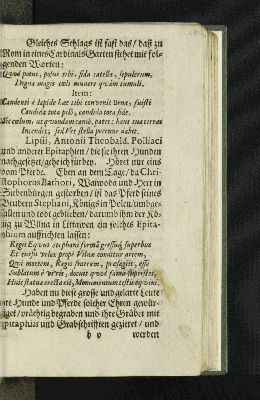 Gleiches Schlags ist fast das / daß zu
Rom in eines Cardinals Garten stehet mit fol-
genden Worten:
Quod potui, posui tibi, fida catella, sepulcrum,
Digna magis cœli munere quàm tumuli.
Item:
Candenti è lapide hæc tibi convenit Urna, fuisti
Candida tota pilis, candida tota fide.
Lipsii, Antonii Theobald. Pollaci
und anderer Epitaphien / die sie ihren Hunden
nachgesetzet / geheich für bey. Höret nur eins
vom Pferde. Eben an dem Tage / da Chri-
stophorus Bathori, Waiwoda und Herr in
Siebenbürgen gestorben / ist das Pferd seines
Brudern Stephani, Königs in Polen / umbge-
fallen und todt geblieben / darumb ihm der Kö-
nig zu Wilna in Littawen ein solches Epita-
phium auffrichten lassen:
Regis Equus Stephani formâ gressuq; superbus
Et cursu velox propè Vilnæ conditur arcem,
Qui mortem, Regis fratrem, præsagiit, esse
Sublatum è vivis, docuit quod fama superstes,
Huic statua erecta est, Monumentum testis equini.
Haben nu diese grosse und gelarte Leute
ihre Hunde und Pferde solcher Ehren gewür-
diget / prächtig begraben und ihre Gräber mit
Epitaphiis und Grabschrifften gezieret / und
b v werden